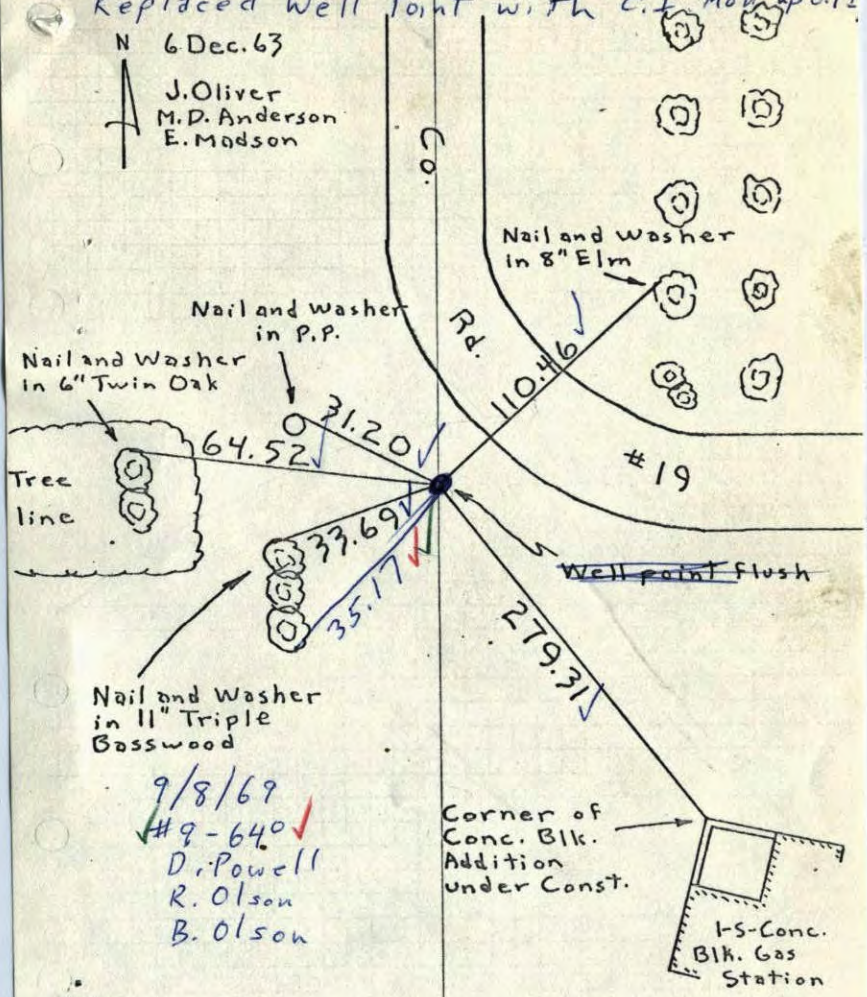 Replaced Well Point with C.I. Mon.
N 6 Dec. 63
J. Oliver
M.D. Anderson
E. Madson
Co.
Rd.
#19
Nail and Washer
in 8" Elm
110.46
Nail and Washer
in P.P.
31.20
Nail and Washer
in 6" Twin Oak
64.52
Tree
line
33.69
35.17
Well point flush
279.31
Nail and Washer
in 11" Triple
Basswood
9/8/69
#9-64°
D. Powell
R. Olson
B. Olson
Corner of
Conc. Blk.
Addition
under Const.
1-S-Conc.
Blk. Gas
Station